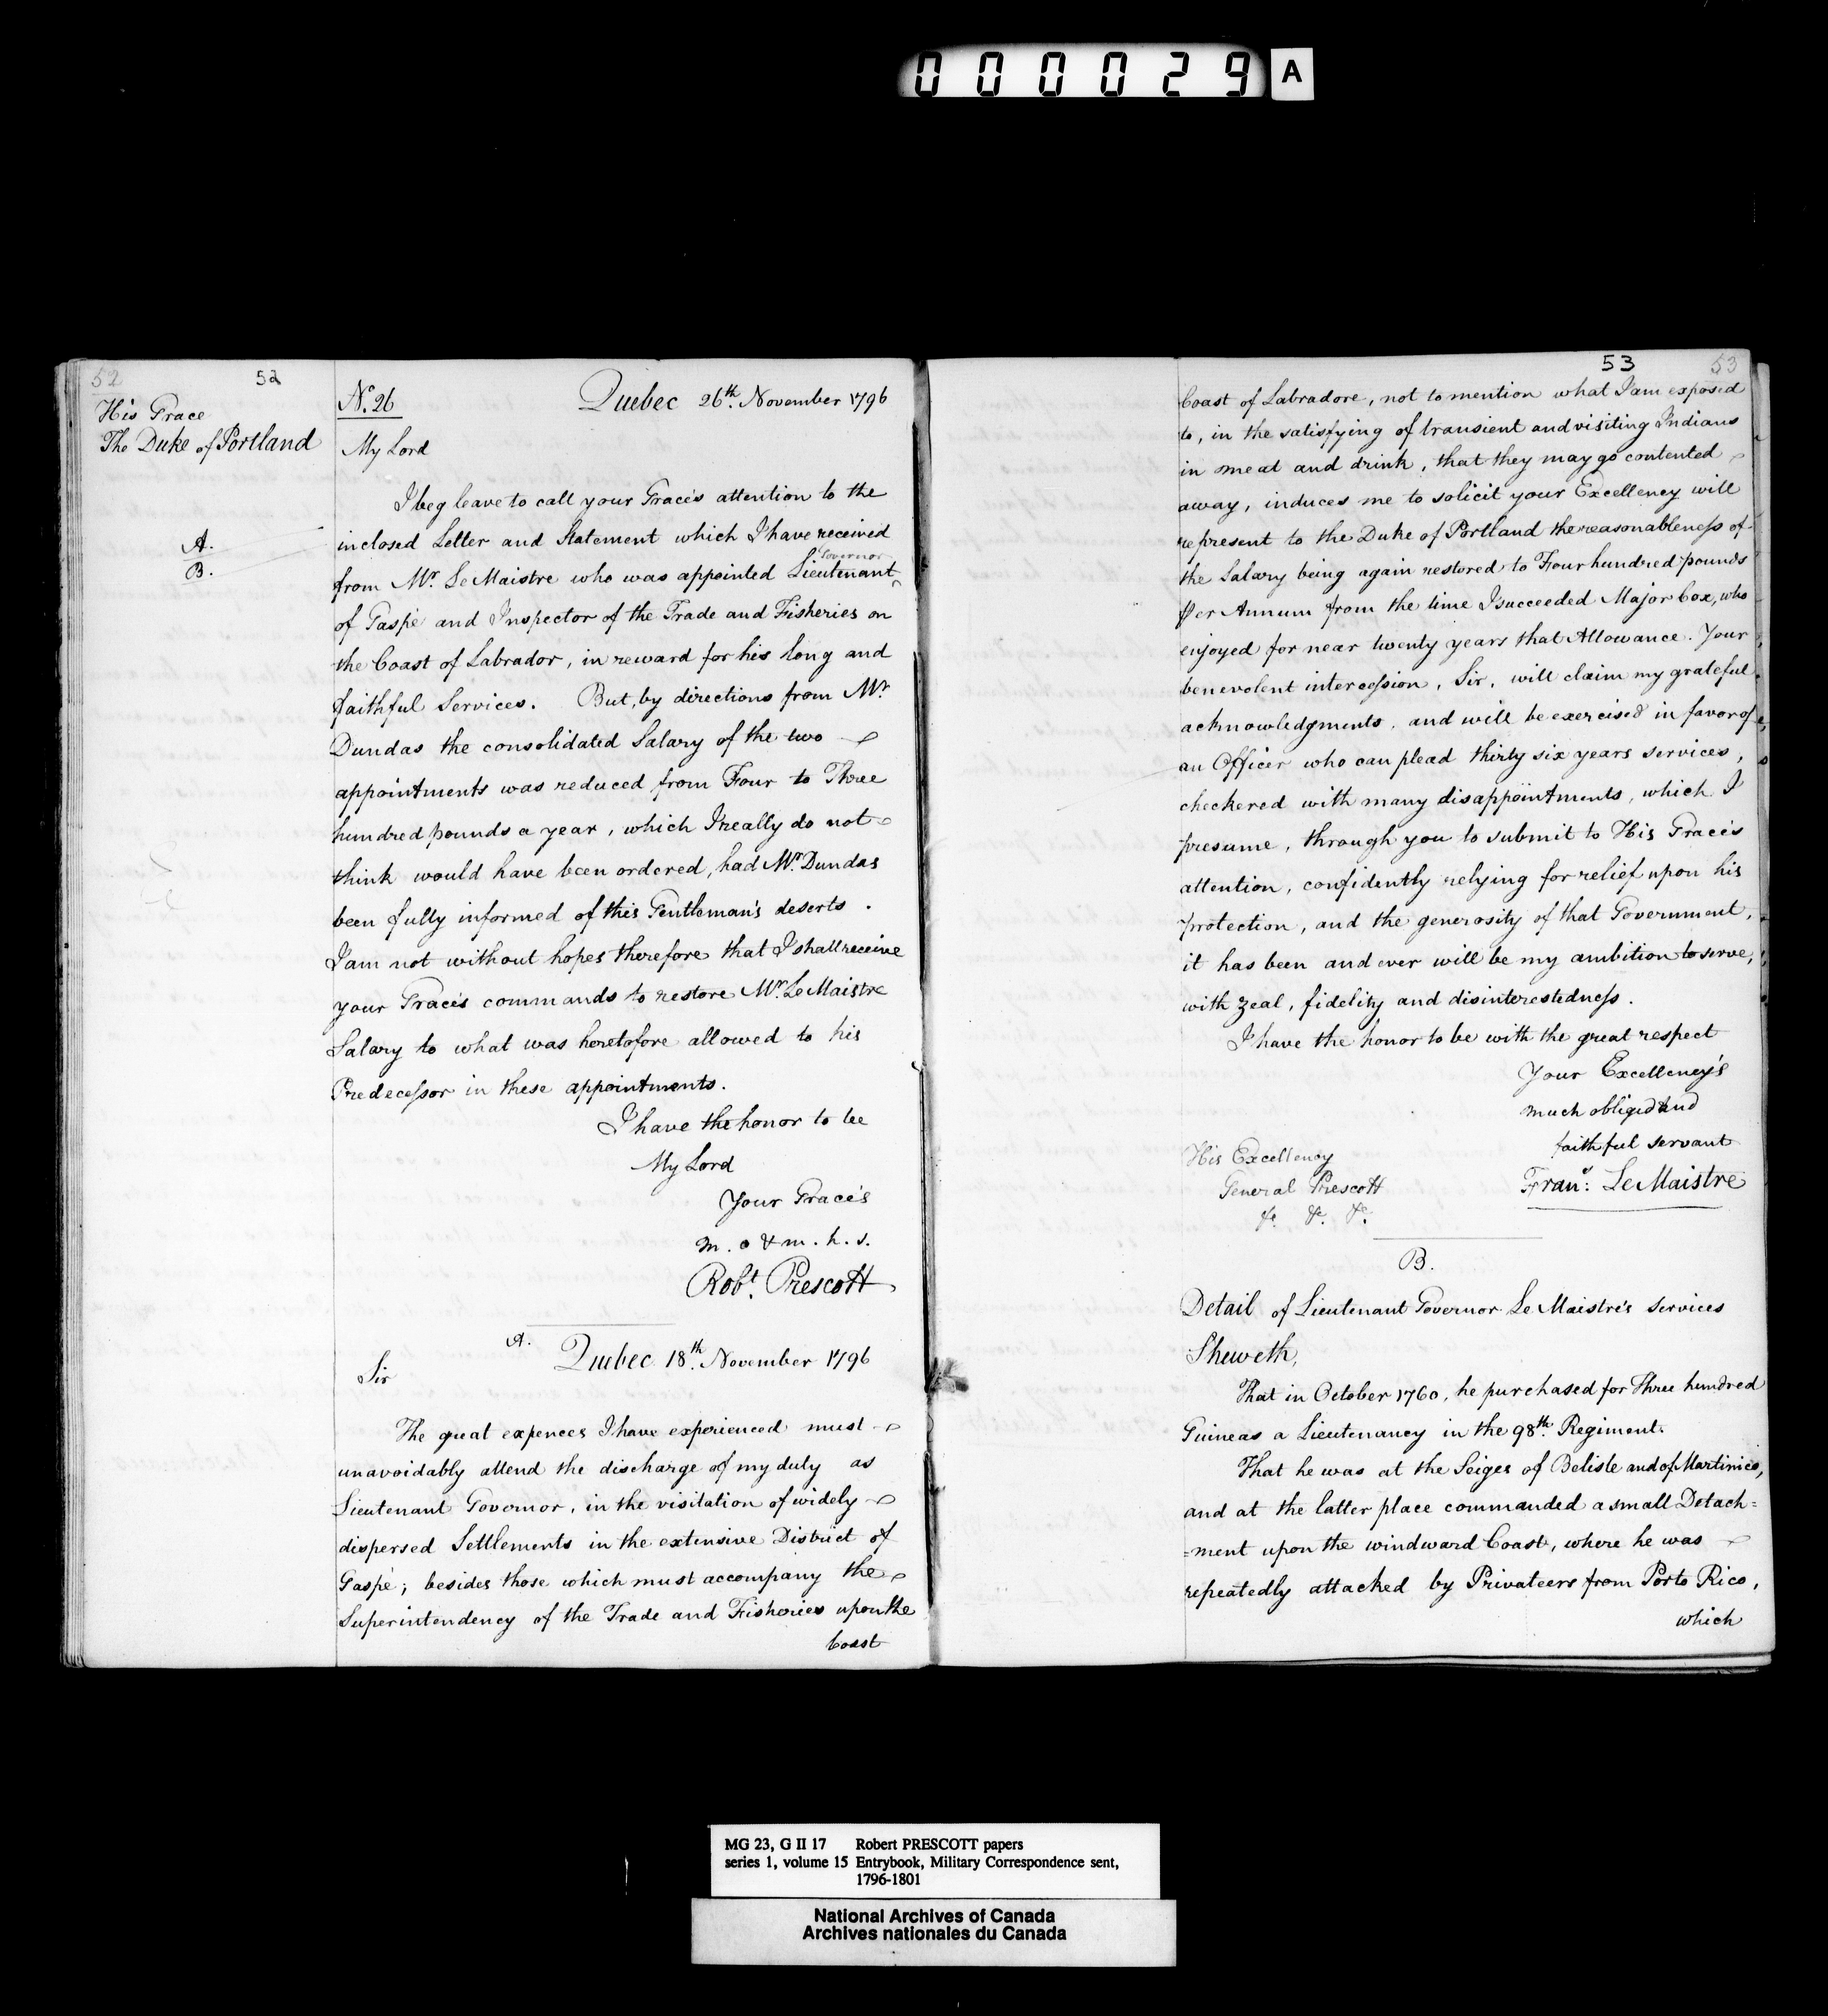 000029 A
52 52
His Grace
The Duke of Portland
A.
B.
No. 26 Quebec 26th. November 1796
My Lord
I beg leave to call your Grace's attention to the
inclosed Letter and Statement which I have received
from Mr. Le Maistre who was appointed Lieutenant ^Governor
of Gaspé and Inspector of the Trade and Fisheries on
the Coast of Labrador, in reward for his long and
faithful Services. But, by directions from Mr.
Dundas the consolidated Salary of the two
appointments was reduced from Four to Three
hundred pounds a year, which I really do not
think would have been ordered, had Mr. Dundas
been fully informed of this Gentleman's deserts.
I am not without hopes therefore that I shall receive
your Grace's commands to restore Mr. Le Maistre
Salary to what was heretofore allowed to his
Predecessor in these appointments.
I have the honor to be
My Lord
Your Grace's
m. o & m. h. s.
Robt. Prescott
A. Quebec 18th. November 1796
Sir
The great expences I have experienced must
unavoidably attend the discharge of my duty as
Lieutenant Governor, in the visitation of widely
dispersed Settlements in the extensive District of
Gaspé; besides those which must accompany the
Superintendency of the Trade and Fisheries upon the
Coast
53 53
Coast of Labradore, not to mention what I am exposed
to, in the satisfying of transient and visiting Indians
in meat and drink, that they may go contented
away, induces me to solicit your Excellency will
represent to the Duke of Portland the reasonableness of
the Salary being again restored to Four hundred pounds
per Annum from the time I succeeded Major Cox, who
enjoyed for near twenty years that Allowance. Your
benevolent intercession, Sir, will claim my grateful
acknowledgments, and will be exercised in favor of
an Officer who can plead thirty six years services,
checkered with many disappointments, which I
presume, through you to submit to His Grace's
attention, confidently relying for relief upon his
protection, and the generosity of that Government,
it has been and ever will be my ambition to serve,
with zeal, fidelity and disinterestedness.
I have the honor to be with the great respect
Your Excellency's
much obliged and
faithful servant
Frans. Le Maistre
His Excellency
General Prescott
&c. &c. &c.
B.
Detail of Lieutenant Governor Le Maistre's services
Sheweth,
That in October 1760, he purchased for Three hundred
Guineas a Lieutenancy in the 98th. Regiment.
That he was at the Seiges of Belisle and of Martinico,
and at the latter place commanded a small Detach=
=ment upon the windward Coast, where he was
repeatedly attacked by Privateers from Porto Rico,
which
MG 23, G II 17 Robert PRESCOTT papers
series 1, volume 15 Entrybook, Military Correspondence sent,
1796-1801
National Archives of Canada
Archives nationales du Canada